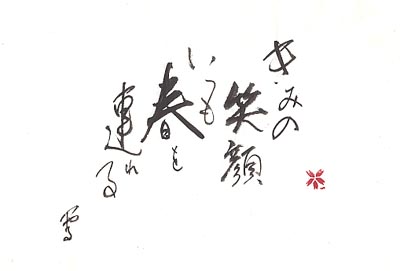 きみの
笑顔
いつも
春を
連れる